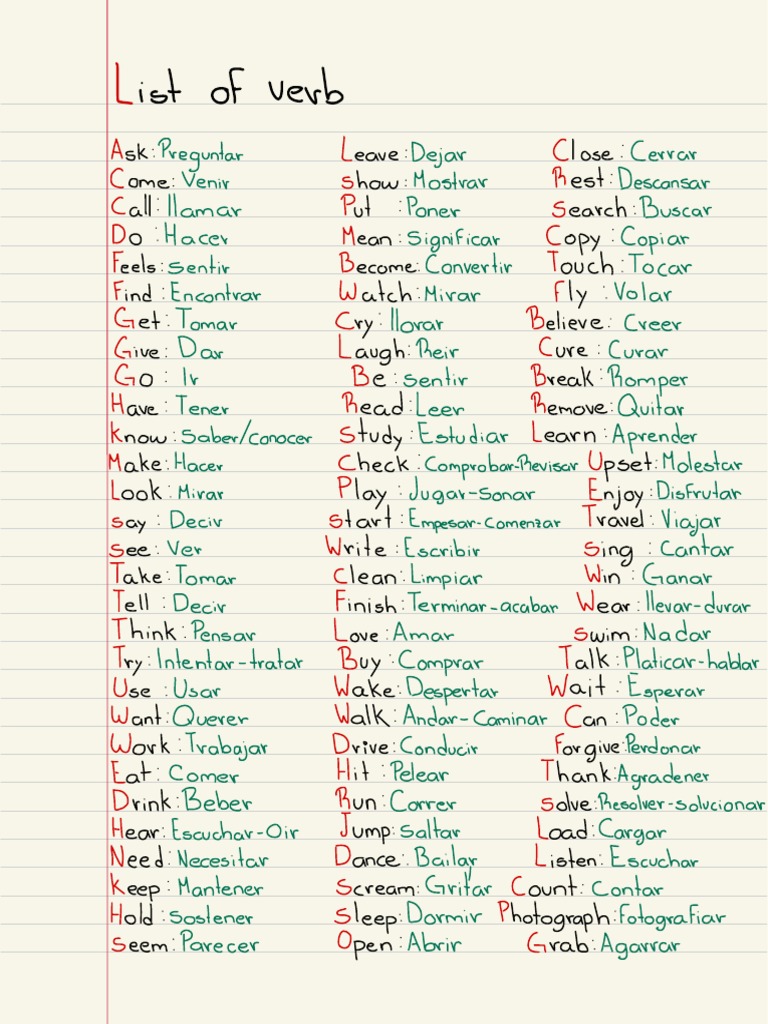 List of verb
Ask: Preguntar
Come: Venir
Call: llamar
Do: Hacer
Feels: sentir
Find: Encontrar
Get: Tomar
Give: Dar
Go: Ir
Have: Tener
Know: Saber/conocer
Make: Hacer
Look: Mirar
say: Decir
see: Ver
Take: Tomar
Tell: Decir
Think: Pensar
Try: Intentar-tratar
Use: Usar
Want: Querer
Work: Trabajar
Eat: Comer
Drink: Beber
Hear: Escuchar-Oir
Need: Necesitar
Keep: Mantener
Hold: Sostener
Seem: Parecer
Leave: Dejar
show: Mostrar
Put: Poner
Mean: Significar
Become: Convertir
Watch: Mirar
Cry: llorar
Laugh: Reir
Be: sentir
Read: Leer
Study: Estudiar
Check: Comprobar-Revisar
Play: Jugar-Sonar
Start: Empesar-Comenzar
Write: Escribir
Clean: Limpiar
Finish: Terminar-acabar
Love: Amar
Buy: Comprar
Wake: Despertar
Walk: Andar-Caminar
Drive: Conducir
Hit: Pelear
Run: Correr
Jump: saltar
Dance: Bailar
Scream: Gritar
Sleep: Dormir
Open: Abrir
Close: Cerrar
Rest: Descansar
Search: Buscar
Copy: Copiar
Touch: Tocar
Fly: Volar
Believe: Creer
Cure: Curar
Break: Romper
Remove: Quitar
Learn: Aprender
Upset: Molestar
Enjoy: Disfrutar
Travel: Viajar
Sing: Cantar
Win: Ganar
Wear: llevar-durar
Swim: Nadar
Talk: Platicar-hablar
Wait: Esperar
Can: Poder
Forgive: Perdonar
Thank: Agradener
Solve: Resolver-solucionar
Load: Cargar
Listen: Escuchar
Count: Contar
Photograph: fotografiar
Grab: Agarrar